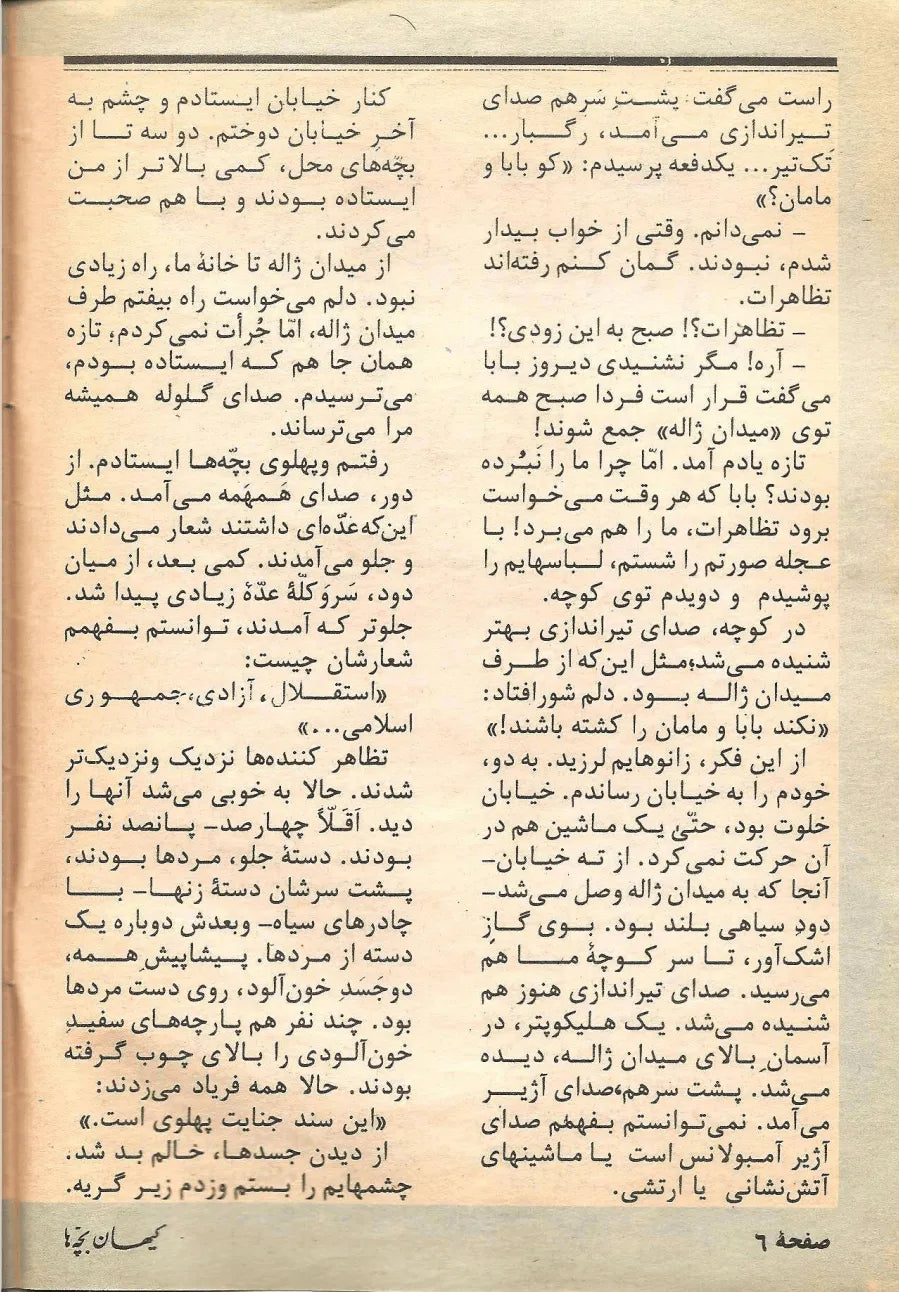 راست می‌گفت: پشتِ سَرهم صدای
تیراندازی می‌آمد، رگبار...
تَک‌تیر... یکدفعه پرسیدم: «کو بابا و
مامان؟»
– نمی‌دانم. وقتی از خواب بیدار
شدم، نبودند. گمان کنم رفته‌اند
تظاهرات.
– تظاهرات؟! صبح به این زودی؟!
– آره! مگر نشنیدی دیروز بابا
می‌گفت قرار است فردا صبح همه
توی «میدان ژاله» جمع شوند!
تازه یادم آمد. امّا چرا ما را نَبُرده
بودند؟ بابا که هر وقت می‌خواست
برود تظاهرات، ما را هم می‌برد! با
عجله صورتم را شستم، لباسهایم را
پوشیدم و دویدم توی کوچه.
در کوچه، صدای تیراندازی بهتر
شنیده می‌شد؛مثل این‌که از طرف
میدان ژاله بود. دلم شورافتاد:
«نکند بابا و مامان را کشته باشند!»
از این فکر، زانوهایم لرزید. به دو،
خودم را به خیابان رساندم. خیابان
خلوت بود، حتّیٰ یک ماشین هم در
آن حرکت نمی‌کرد. از ته خیابان–
آنجا که به میدان ژاله وصل می‌شد–
دودِ سیاهی بلند بود. بوی گازِ
اشک‌آور، تا سر کوچهٔ ما هم
می‌رسید. صدای تیراندازی هنوز هم
شنیده می‌شد. یک هلیکوپتر، در
آسمانِ بالای میدان ژاله، دیده
می‌شد. پشت سرهم،صدای آژیر
می‌آمد. نمی‌توانستم بفهمم صدای
آژیر آمبولانس است یا ماشینهای
آتش‌نشانی یا ارتشی.
کنار خیابان ایستادم و چشم به
آخرِ خیابان دوختم. دو سه تا از
بچّه‌های محل، کمی بالاتر از من
ایستاده بودند و با هم صحبت
می‌کردند.
از میدان ژاله تا خانهٔ ما، راه زیادی
نبود. دلم می‌خواست راه بیفتم طرف
میدان ژاله، امّا جُرأت نمی‌کردم؛ تازه
همان جا هم که ایستاده بودم،
می‌ترسیدم. صدای گلوله همیشه
مرا می‌ترساند.
رفتم وپهلوی بچّه‌ها ایستادم. از
دور، صدای هَمهَمه می‌آمد. مثل
این‌که عدّه‌ای داشتند شعار می‌دادند
و جلو می‌آمدند. کمی بعد، از میان
دود، سَروَکلّهٔ عدّهٔ زیادی پیدا شد.
جلوتر که آمدند، توانستم بفهمم
شعارشان چیست:
«استقلال، آزادی،جمهوری
اسلامی...»
تظاهر کننده‌ها نزدیک ونزدیک‌تر
شدند. حالا به خوبی می‌شد آنها را
دید. اَقَلّاً چهارصد– پانصد نفر
بودند. دستهٔ جلو، مردها بودند،
پشت سرشان دستهٔ زنها– با
چادرهای سیاه– وبعدش دوباره یک
دسته از مردها. پیشاپیشِ همه،
دوجَسَدِ خون‌آلود، روی دست مردها
بود. چند نفر هم پارچه‌های سفیدِ
خون‌آلودی را بالای چوب گرفته
بودند. حالا همه فریاد می‌زدند:
«این سند جنایت پهلوی است.»
از دیدن جسدها، حالم بد شد.
چشمهایم را بستم وزدم زیر گریه.
صفحهٔ ۶
کیهان بچّه‌ها